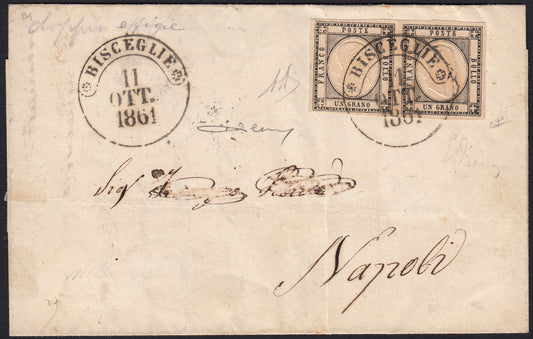 doppia effigie
BISCEGLIE
11
OTT.
1861
POSTE
FRANCO
BOLLO
UN GRANO
POSTE
FRANCO
BOLLO
UN GRANO
BISCEGLIE
11
OTT.
1861
Diena
Sig
Napoli